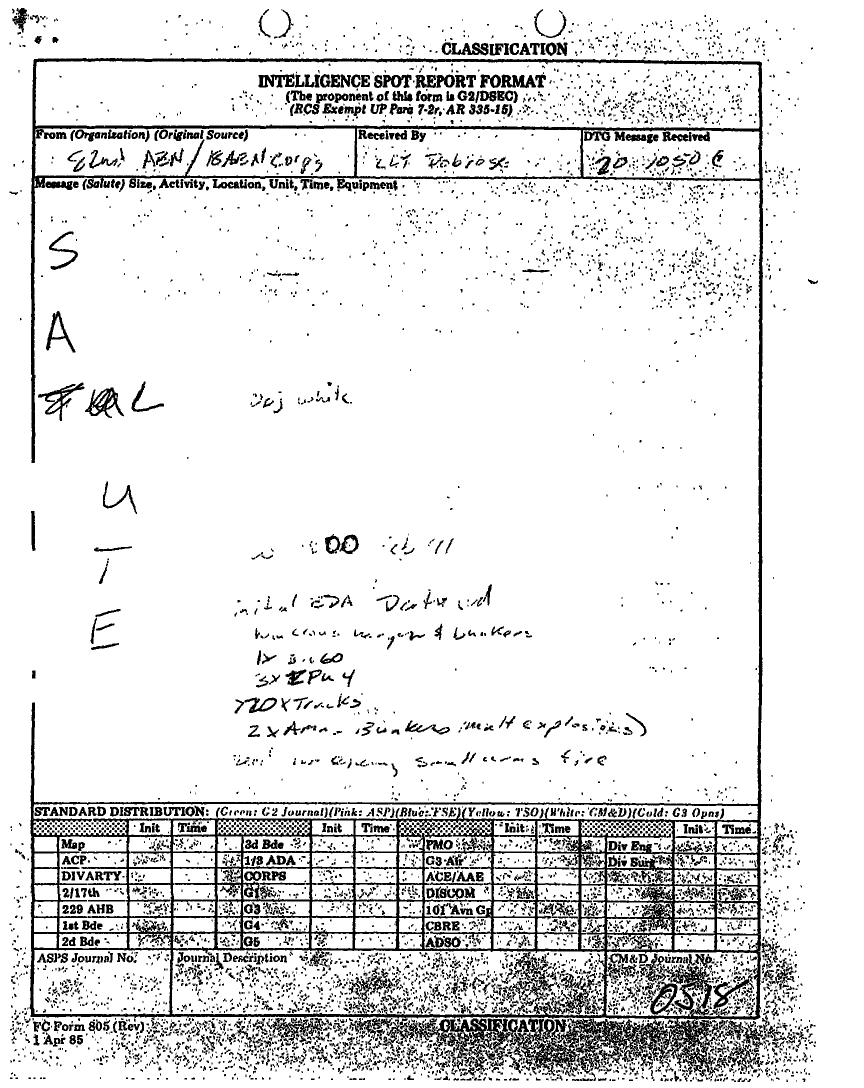 CLASSIFICATION
INTELLIGENCE SPOT REPORT FORMAT
(The proponent of this form is G2/DSEC)
(RCS Exempt UP Para 7-2r, AR 335-15)
From (Organization) (Original Source) Received By DTG Message Received
82nd ABN / Corps 20 1050 C
Message (Salute) Size, Activity, Location, Unit, Time, Equipment
S
A
L
Obj white
U
T
00
E
initial BDA
& bunkers
1x
3x ZPU 4
Trucks
2x Bunkers (mult explosions)
small arms fire
STANDARD DISTRIBUTION: (Green: G2 Journal)(Pink: ASP)(Blue: FSE)(Yellow: TSO)(White: CM&D)(Gold: G3 Opns)
Init Time Init Time Init Time Init Time
Map 3d Bde PMO Div Eng
ACP 1/3 ADA G3 Air Div Surg
DIVARTY CORPS ACE/AAE
2/17th G1 DISCOM
229 AHB G3 101 Avn Gp
1st Bde G4 CBRE
2d Bde G5 ADSO
ASPS Journal No. Journal Description CM&D Journal No.
0518
FC Form 805 (Rev) CLASSIFICATION
1 Apr 85